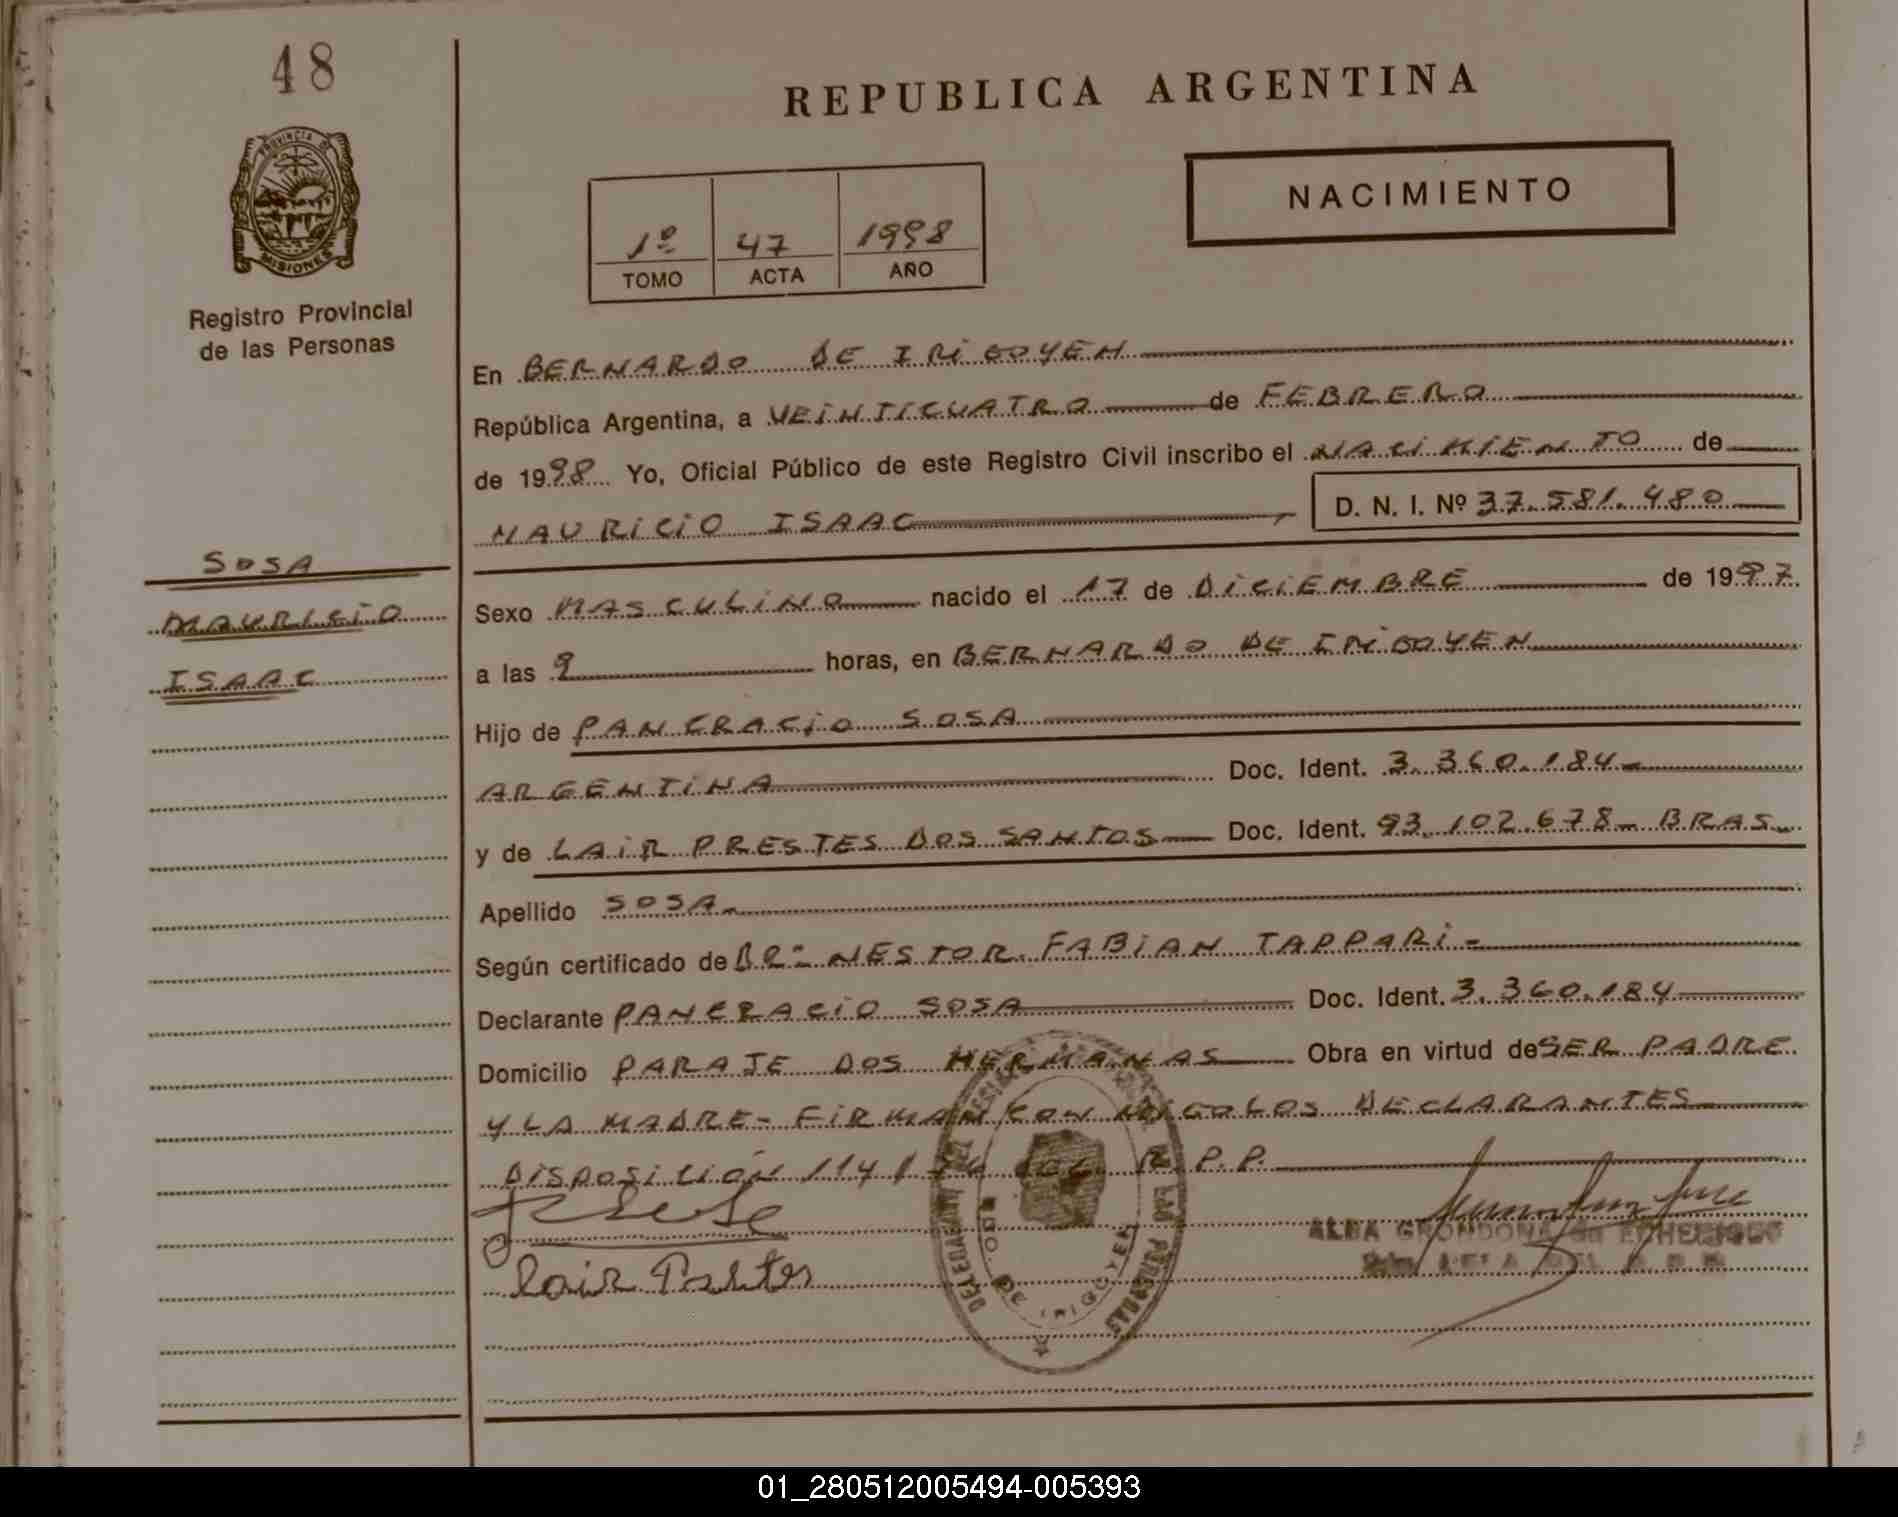 48
PROVINCIA DE
MISIONES
Registro Provincial
de las Personas
SOSA
MAURICIO
ISAAC
REPUBLICA ARGENTINA
NACIMIENTO
1º 47 1998
TOMO ACTA AÑO
En BERNARDO DE IRIGOYEN
República Argentina, a VEINTICUATRO de FEBRERO
de 1998 Yo, Oficial Público de este Registro Civil inscribo el NACIMIENTO de
MAURICIO ISAAC D. N. I. Nº 37.581.480
Sexo MASCULINO nacido el 17 de DICIEMBRE de 1997
a las 9 horas, en BERNARDO DE IRIGOYEN
Hijo de PANCRACIO SOSA
ARGENTINA Doc. Ident. 3.360.184
y de LAIR PRESTES DOS SANTOS Doc. Ident. 93.102.678- BRAS.
Apellido SOSA
Según certificado de DR. NESTOR FABIAN TAPPARI
Declarante PANCRACIO SOSA Doc. Ident. 3.360.184
Domicilio PARAJE DOS HERMANAS Obra en virtud de SER PADRE
Y LA MADRE- FIRMAN CON LOS DECLARANTES
DISPOSICIÓN 114/ R.P.P.
Lair Prestes
ALBA GRONDONA de ECHERIQUE
BDO. DE IRIGOYEN
01_280512005494-005393